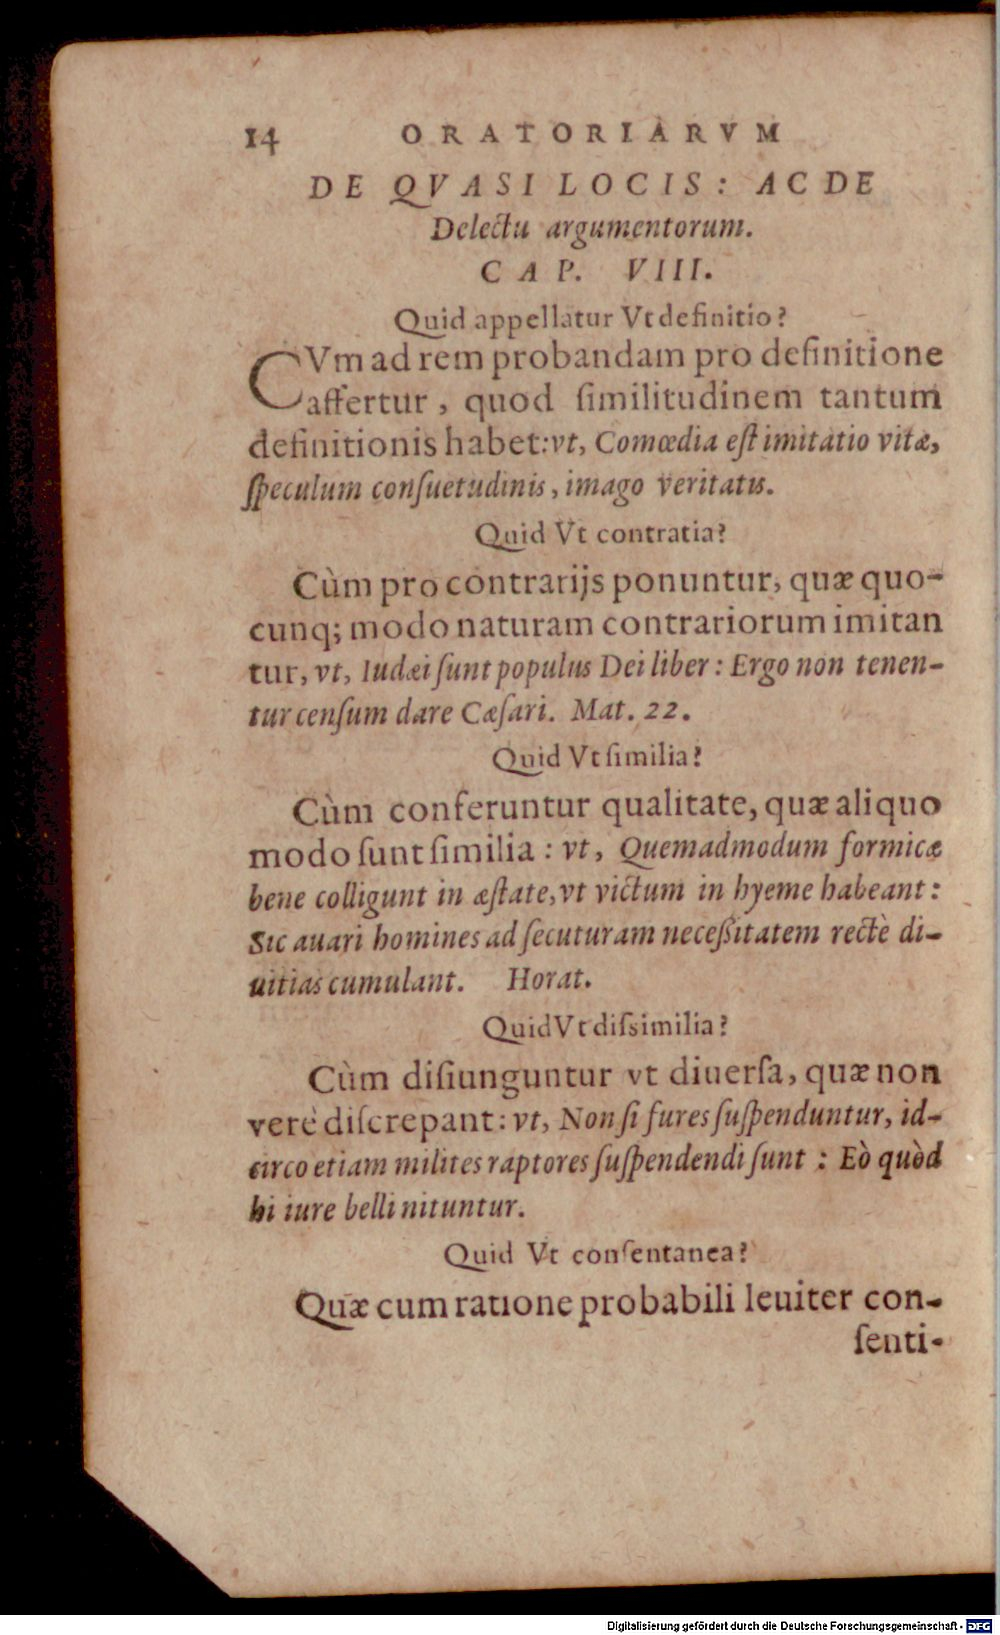 14 ORATORIARVM
DE QVASI LOCIS: AC DE
Delectu argumentorum.
CAP. VIII.
Quid appellatur Vt definitio?
CVm ad rem probandam pro definitione
affertur, quod ſimilitudinem tantum
definitionis habet: vt, Comœdia eſt imitatio vitæ,
ſpeculum conſuetudinis, imago veritatis.
Quid Vt contratia?
Cùm pro contrarijs ponuntur, quæ quo-
cunq; modo naturam contrariorum imitan
tur, vt, Iudæi ſunt populus Dei liber: Ergo non tenen-
tur cenſum dare Cæſari. Mat. 22.
Quid Vt ſimilia?
Cùm conferuntur qualitate, quæ aliquo
modo ſunt ſimilia: vt, Quemadmodum formicæ
bene colligunt in æſtate, vt victum in hyeme habeant:
Sic auari homines ad ſecuturam neceſſitatem rectè di-
uitias cumulant. Horat.
Quid Vt diſsimilia?
Cùm diſiunguntur vt diuerſa, quæ non
verè diſcrepant: vt, Non ſi fures ſuſpenduntur, id-
circo etiam milites raptores ſuſpendendi ſunt: Eò quòd
hi iure belli nituntur.
Quid Vt conſentanea?
Quæ cum ratione probabili leuiter con-
ſenti-
Digitalisierung gefördert durch die Deutsche Forschungsgemeinschaft - DFG